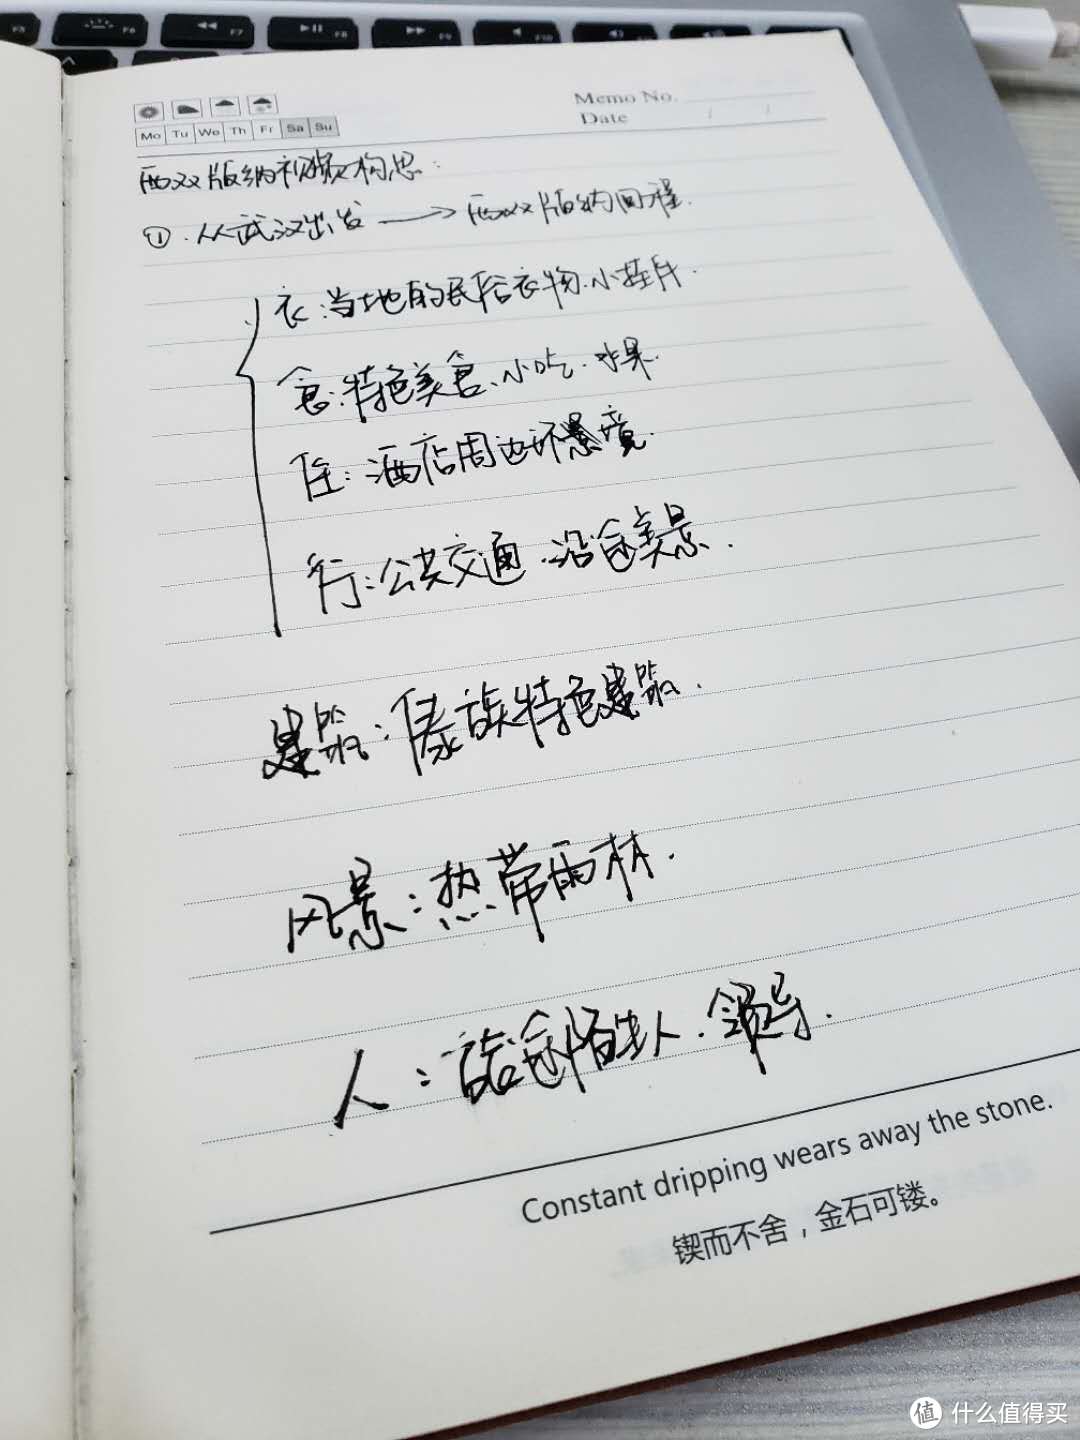 F5 F6 F7 F8 F9 F10
Memo No.
Date / /
Mo Tu We Th Fr Sa Su
西双版纳视频构思：
①.从武汉出发→西双版纳回程.
衣：当地的民俗衣物.小挂件.
食：特色美食、小吃.水果.
住：酒店周边环境.
行：公共交通.沿途美景.
建筑：傣族特色建筑.
风景：热带雨林.
人：陌生人.领导.
Constant dripping wears away the stone.
锲而不舍，金石可镂。
值 什么值得买